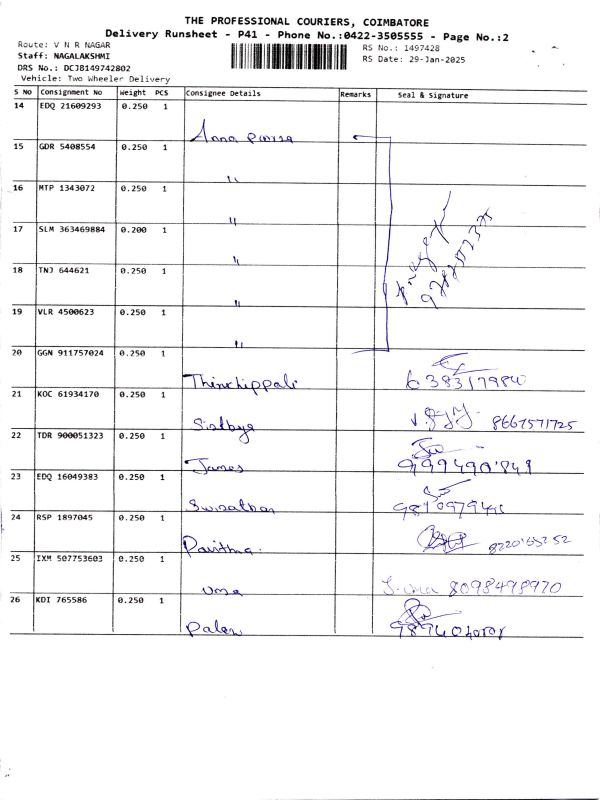 THE PROFESSIONAL COURIERS, COIMBATORE
Delivery Runsheet - P41 - Phone No.:0422-3505555 - Page No.:2
Route: V N R NAGAR
RS No.: 1497428
Staff: NAGALAKSHMI
RS Date: 29-Jan-2025
DRS No.: DCJB149742802
Vehicle: Two Wheeler Delivery
S No Consignment No Weight PCS Consignee Details Remarks Seal & Signature
14 EDQ 21609293 0.250 1
Anna
15 GDR 5408554 0.250 1
"
16 MTP 1343072 0.250 1
"
17 SLM 363469884 0.200 1
"
18 TNJ 644621 0.250 1
"
19 VLR 4500623 0.250 1
"
20 GGN 911757024 0.250 1
21 KOC 61934170 0.250 1
8667571725
22 TDR 900051323 0.250 1
James
23 EDQ 16049383 0.250 1
24 RSP 1897045 0.250 1
Pavithra
25 IXM 507753603 0.250 1
Uma 8098498970
26 KDI 765586 0.250 1